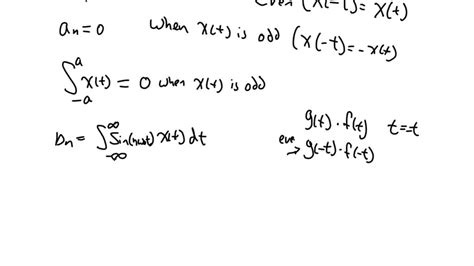 Even (x(-t) = x(t)
aₙ = 0 when x(t) is odd (x(-t) = -x(t)
∫₋ₐᵃ x(t) = 0 when x(t) is odd
bₙ = ∫₋∞^∞ sin(nωt) x(t) dt
g(t) · f(t) t=-t
eve → g(-t) · f(-t)